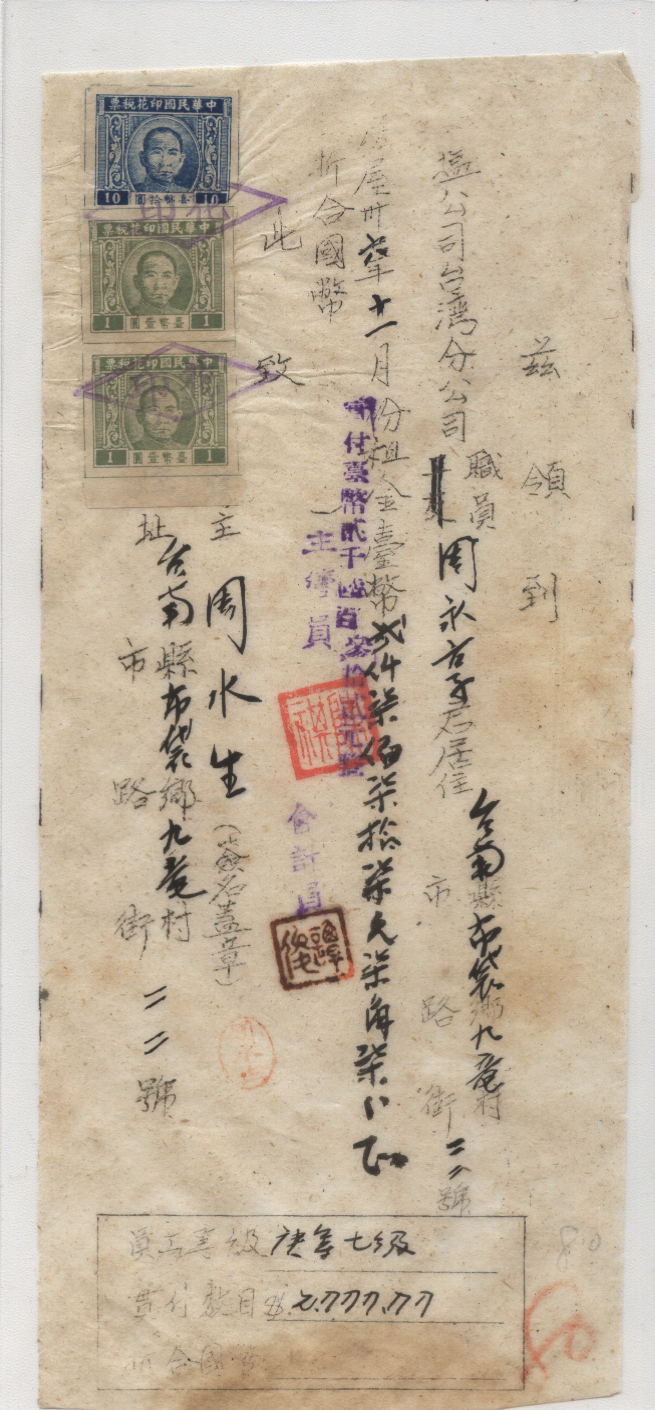 茲領到
鹽公司台灣分公司職員周永吉君居住
台南縣布袋鄉九龍村
市路街二二號
房屋卅六年十一月份租金臺幣貳仟柒佰柒拾柒元柒角柒分正
折合國幣
實付臺幣貳千四百
主管員
會計員
此致
主周水生(簽名蓋章)
址台南縣布袋鄉九龍村
市路街二二號
中華民國印花稅票
10 臺幣拾圓 10
中華民國印花稅票
1 臺幣壹圓 1
中華民國印花稅票
1 臺幣壹圓 1
員工等級
七級
實付數目$2,777.77
折合國幣
80